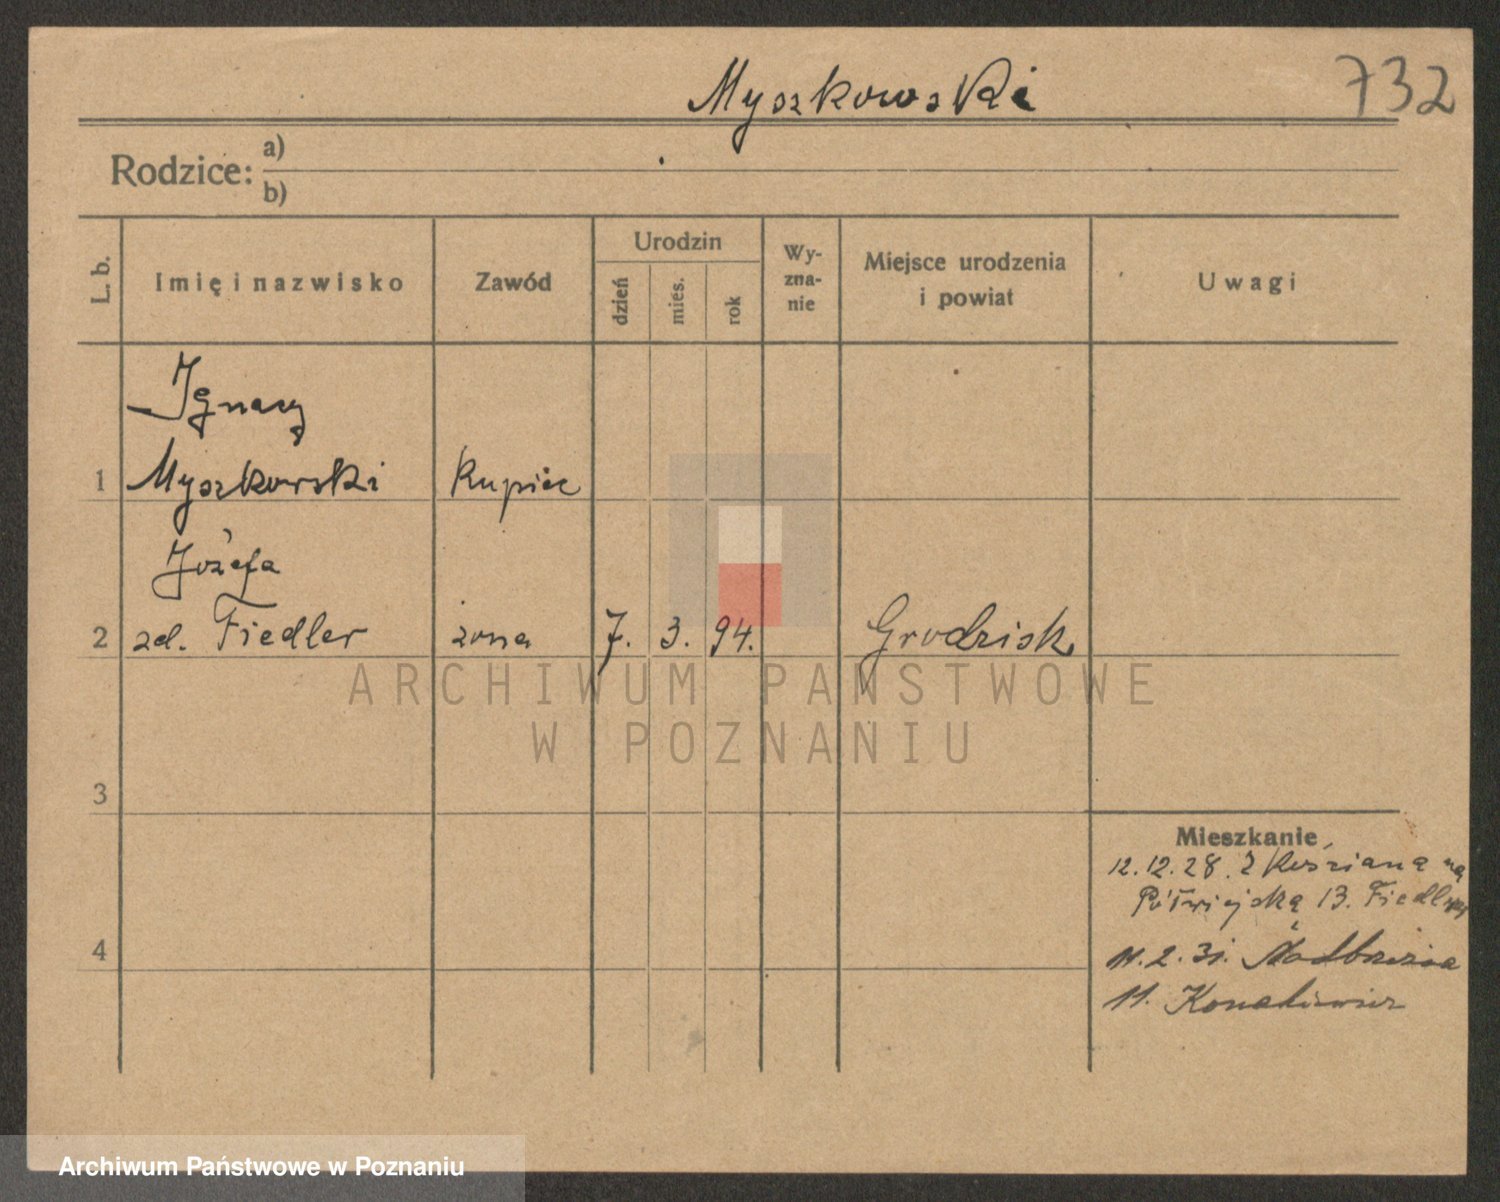 Myszkowski
732
Rodzice: a)
b)
L. b.
Imię i nazwisko
Zawód
Urodzin
dzień
mies.
rok
Wy-
zna-
nie
Miejsce urodzenia
i powiat
Uwagi
Ignacy
1 Myszkowski kupiec
Józefa
2 zd. Fiedler żona 7. 3. 94. Grodzisk
ARCHIWUM PAŃSTWOWE
W POZNANIU
3
Mieszkanie
12.12.28. z Kościana na
Półwiejską 13. Fiedler
4
11.2.31. Nadbrzeżna
11.
Archiwum Państwowe w Poznaniu